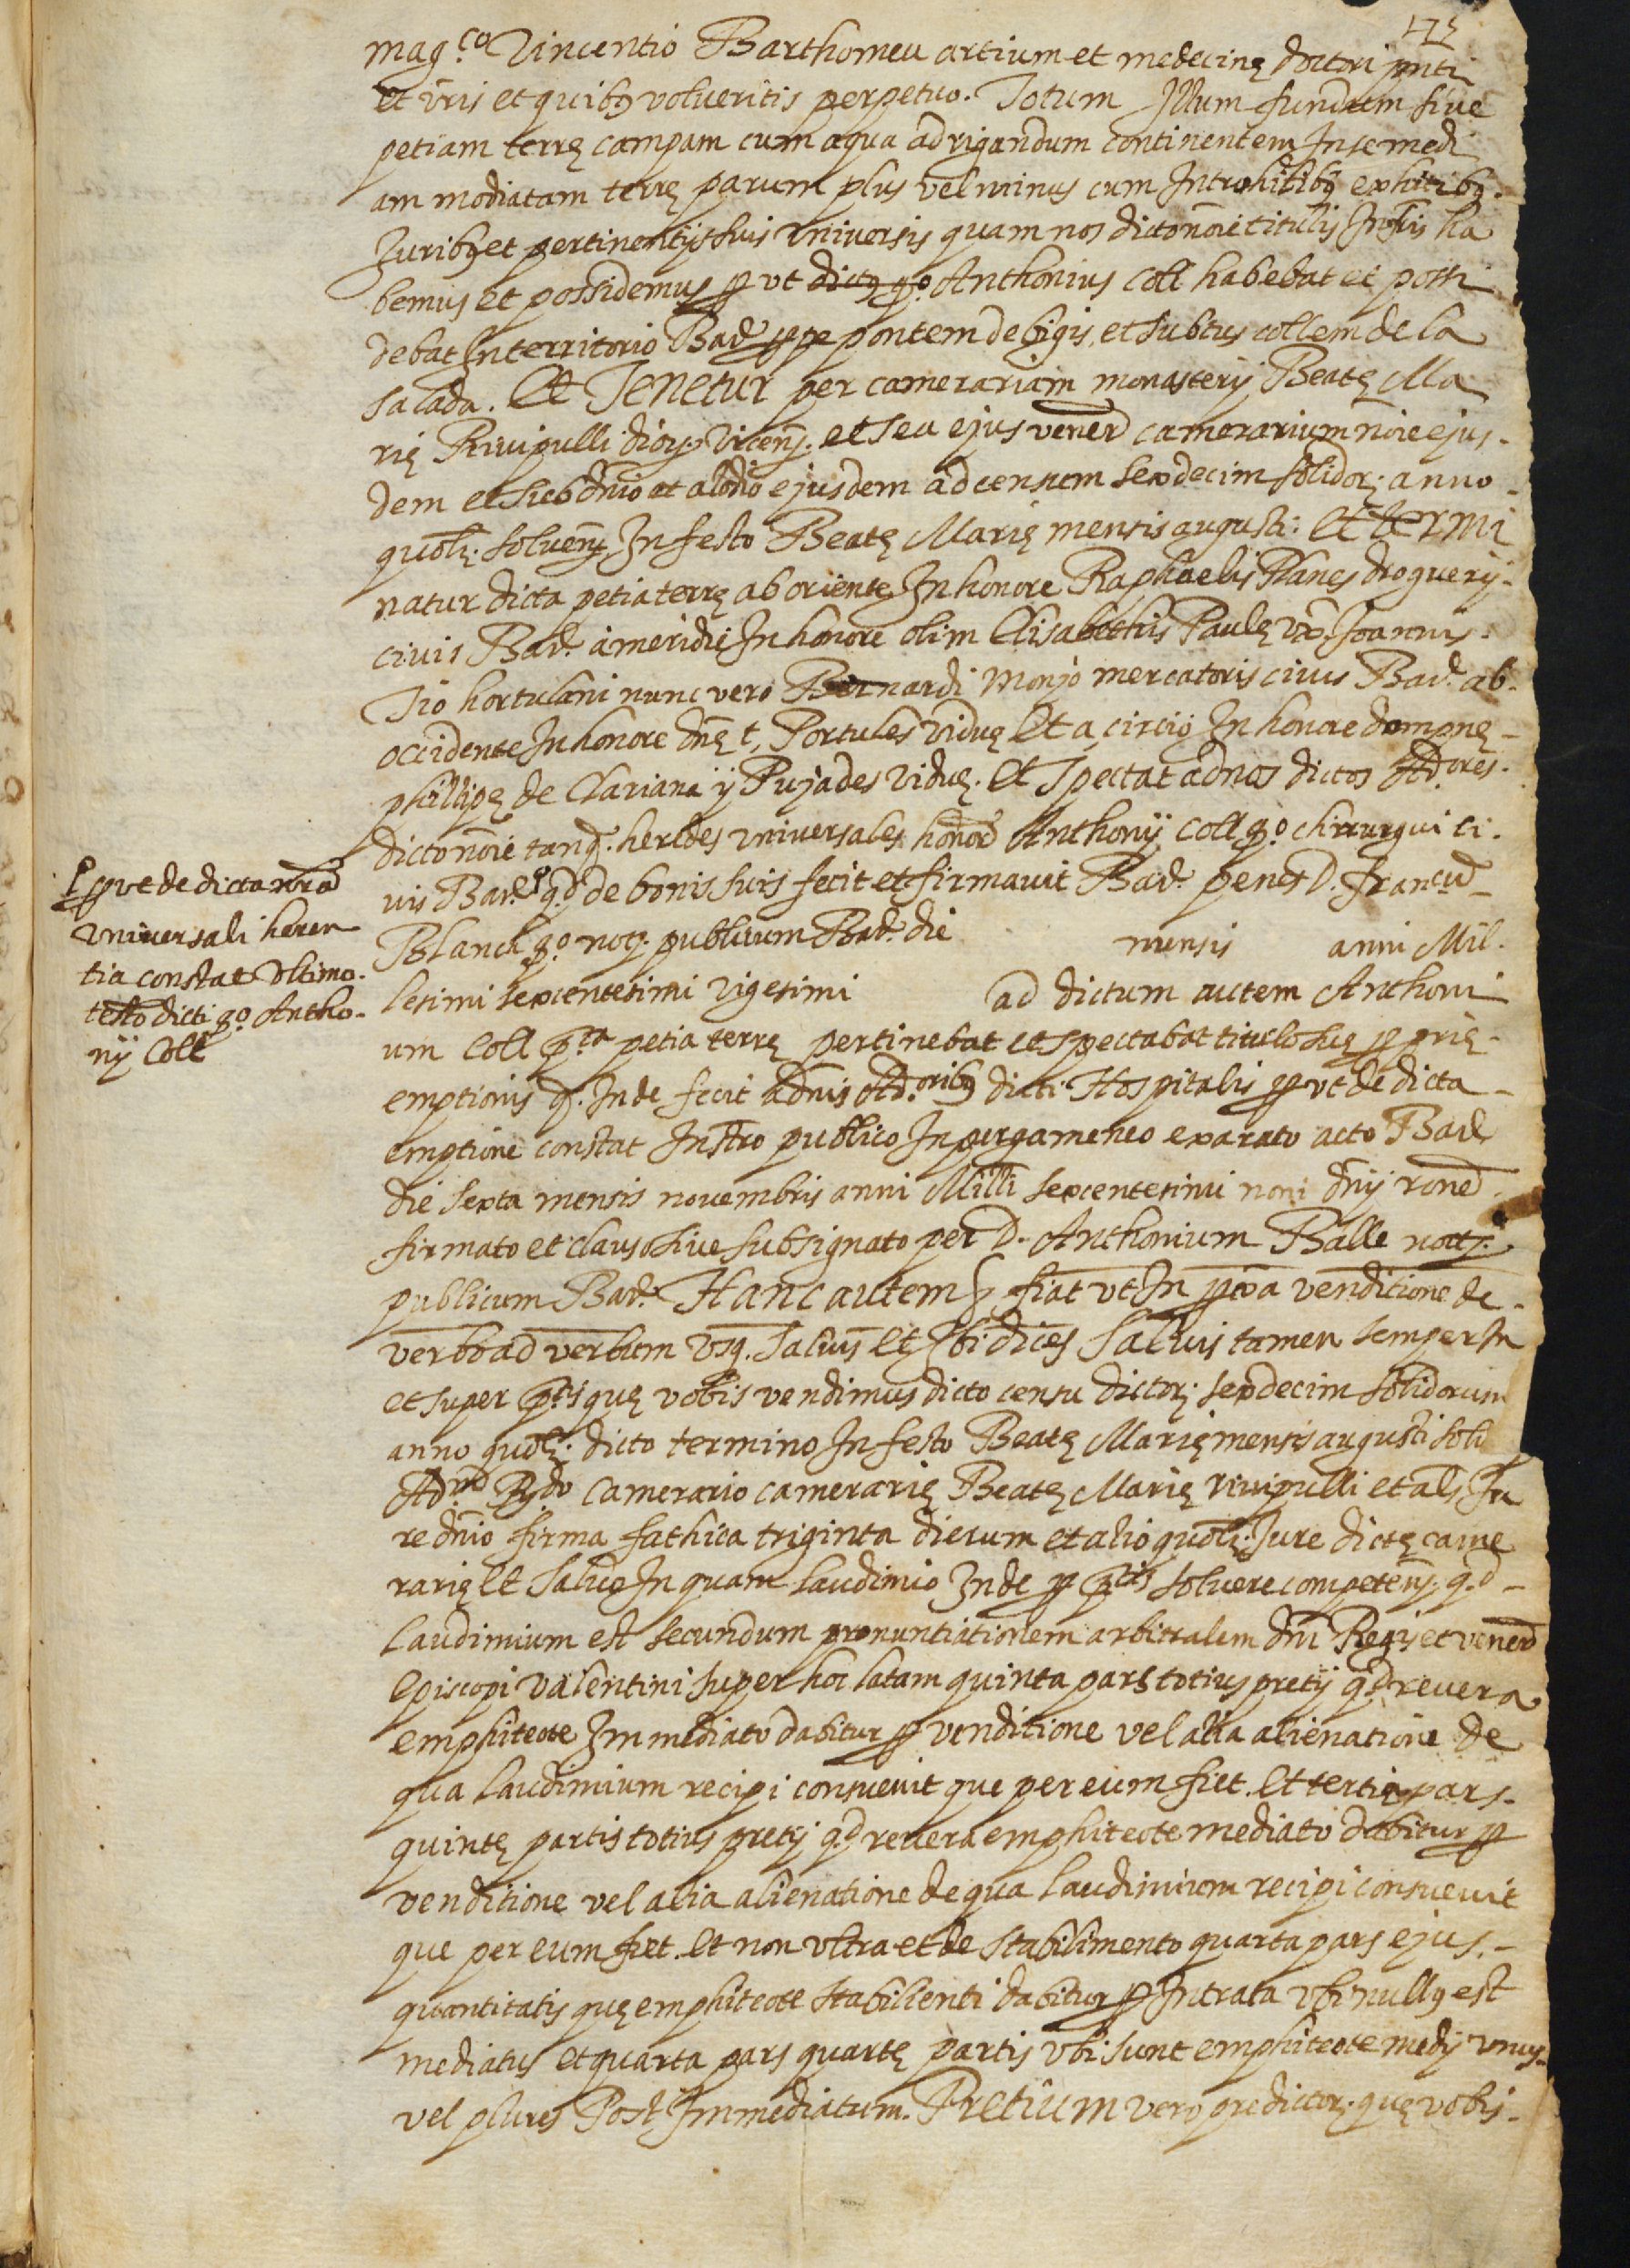 mag.co Vincentio Barthomeu artium et medecinę doctori pnti
et vris et quibꝯ volueritis perpetuo. Totum Illum fundum sive
petiam terrę campam cum aqua ad rigandum continentem In se medi
am modiatam terrę parum plus vel minus cum Introhitibꝯ exhitibꝯ.
Juribꝯ et pertinentijs suis vniversis quam nos dicto nōie titulis Infris ha
bemus et possidemus ꝓ vt dictꝯ qº. Anthonius Coll habebat et possi
debat In territorio Bar̄ ꝓpe pontem de bigis, et subtus collem de la
salada. Et Tenetur per camerariam monasterij Beatę Ma
rię Rivipulli diocę. Vicenȩ. et seu ejus venerd camerarium nōie ejus-
dem et sub dnio et alodio ejusdem ad censum sexdecim solidoȩ. anno-
quolȩ. solvenȩ In festo Beatę Marię mensis augusti: Et termi
natur dicta petia terrę ab oriente In honore Raphaelis Planes droguerij-
civis Bar̄. a meridie In honore olim Elisabethis Paulę vx̄. Joannis.
Tio hortulani nunc vero Bernardi Monjo mercatoris civis Bar̄. ab-
occidente In honore dnę t, Portules viduę Et a circio In honore dompnę-
phillipę de Clariana y Pujades viduę. Et Spectat ad nos dictos Ad.ores.
dicto nōie tanq̄. heredes vniversales honord Anthonij Coll qº. chirurgui ci-
vis Bar̄. qd de bonis suis fecit et firmavit Bar̄. penes D. Francud-
Blanch qº. notȩ. publicum Bar̄. die mensis anni Mil-
lesimi sexcentesimi vigesimi ad dictum autem Anthoni
um Coll p̄.ta petia terrę pertinebat et spectabat titulo suę ꝓprię-
emptionis q̄. Inde fecit ad nis Ad.oribꝯ dicti Hospitalis ꝓ vt de dicta-
emptione constat Instro publico In pergameneo exarato acto Bar̄
die sexta mensis novembris anni Milli sexcentesimi noni dnij roned
firmato et clauso sive subsignato per D. Anthonium Batlle notȩ.
publicum Bar̄. Hanc autem ȩ fiat vt In pr̄xa venditione de-
verbo ad verbum vsq̄. salvis Etȩ Ibi dices Salvis tamen semper In
et super p̄.tis quę vobis vendimus dicto censu dictoȩ. sexdecim solidorum
anno quolȩ. dicto termino In festo Beatę Marię mensis augusti solv
Ad.md Rdo Camerario camerarię Beatę Marię rivipulli et als Ju
re dnio firma fathica triginta dierum et alio quolȩ. Jure dictę came
rarię Et Salvo In quam laudimio Inde ꝓ p̄ctis solvere competenȩ. qd-
laudimium est secundum pronuntiationem arbitralem dni Regis et venerd
Episcopi valentini super hoc latam quinta pars totius pretij qd revera
emphiteote Immediato dabitur ꝓ venditione vel alia alienatione de
qua laudimium recipi consuevit que per eum fiet. Et tertia pars-
quintę partis totius pretij qd revera emphiteote mediato dabitur ꝓ
venditione vel alia alienatione de qua laudimium recipi consuevit
que per eum fiet. Et non vltra et de stabilimento quarta pars ejus.-
quantitatis quę emphiteote stabilienti dabitur ꝓ Intrata vbi nullꝯ est
mediatus et quarta pars quartę partis vbi sunt emphiteote medij vnus-
vel plures Post Immediatum. Pretium vero predictoȩ. quę vobis-
ꝓ vt de dicta nrad
vniversali heren
tia constat vltimo-
testo dicti qº Antho-
nij Coll